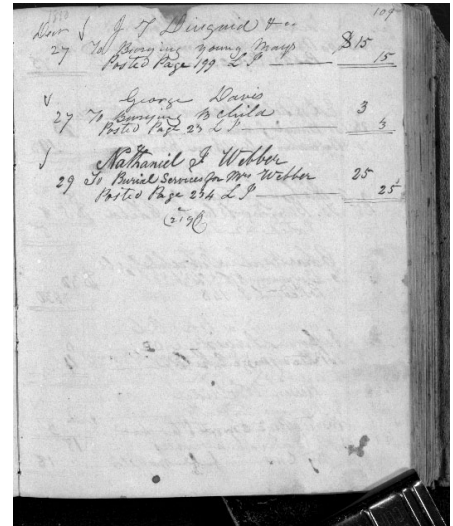 109
J T Diuguid & co
27 To Burying young Mays $15
Posted Page 199 L P 15
George Davis
27 To Burying B Child 3
Posted Page 23 L P 3
Nathaniel J Webber
29 To Burial Services for Mrs Webber 25
Posted Page 234 L P 25